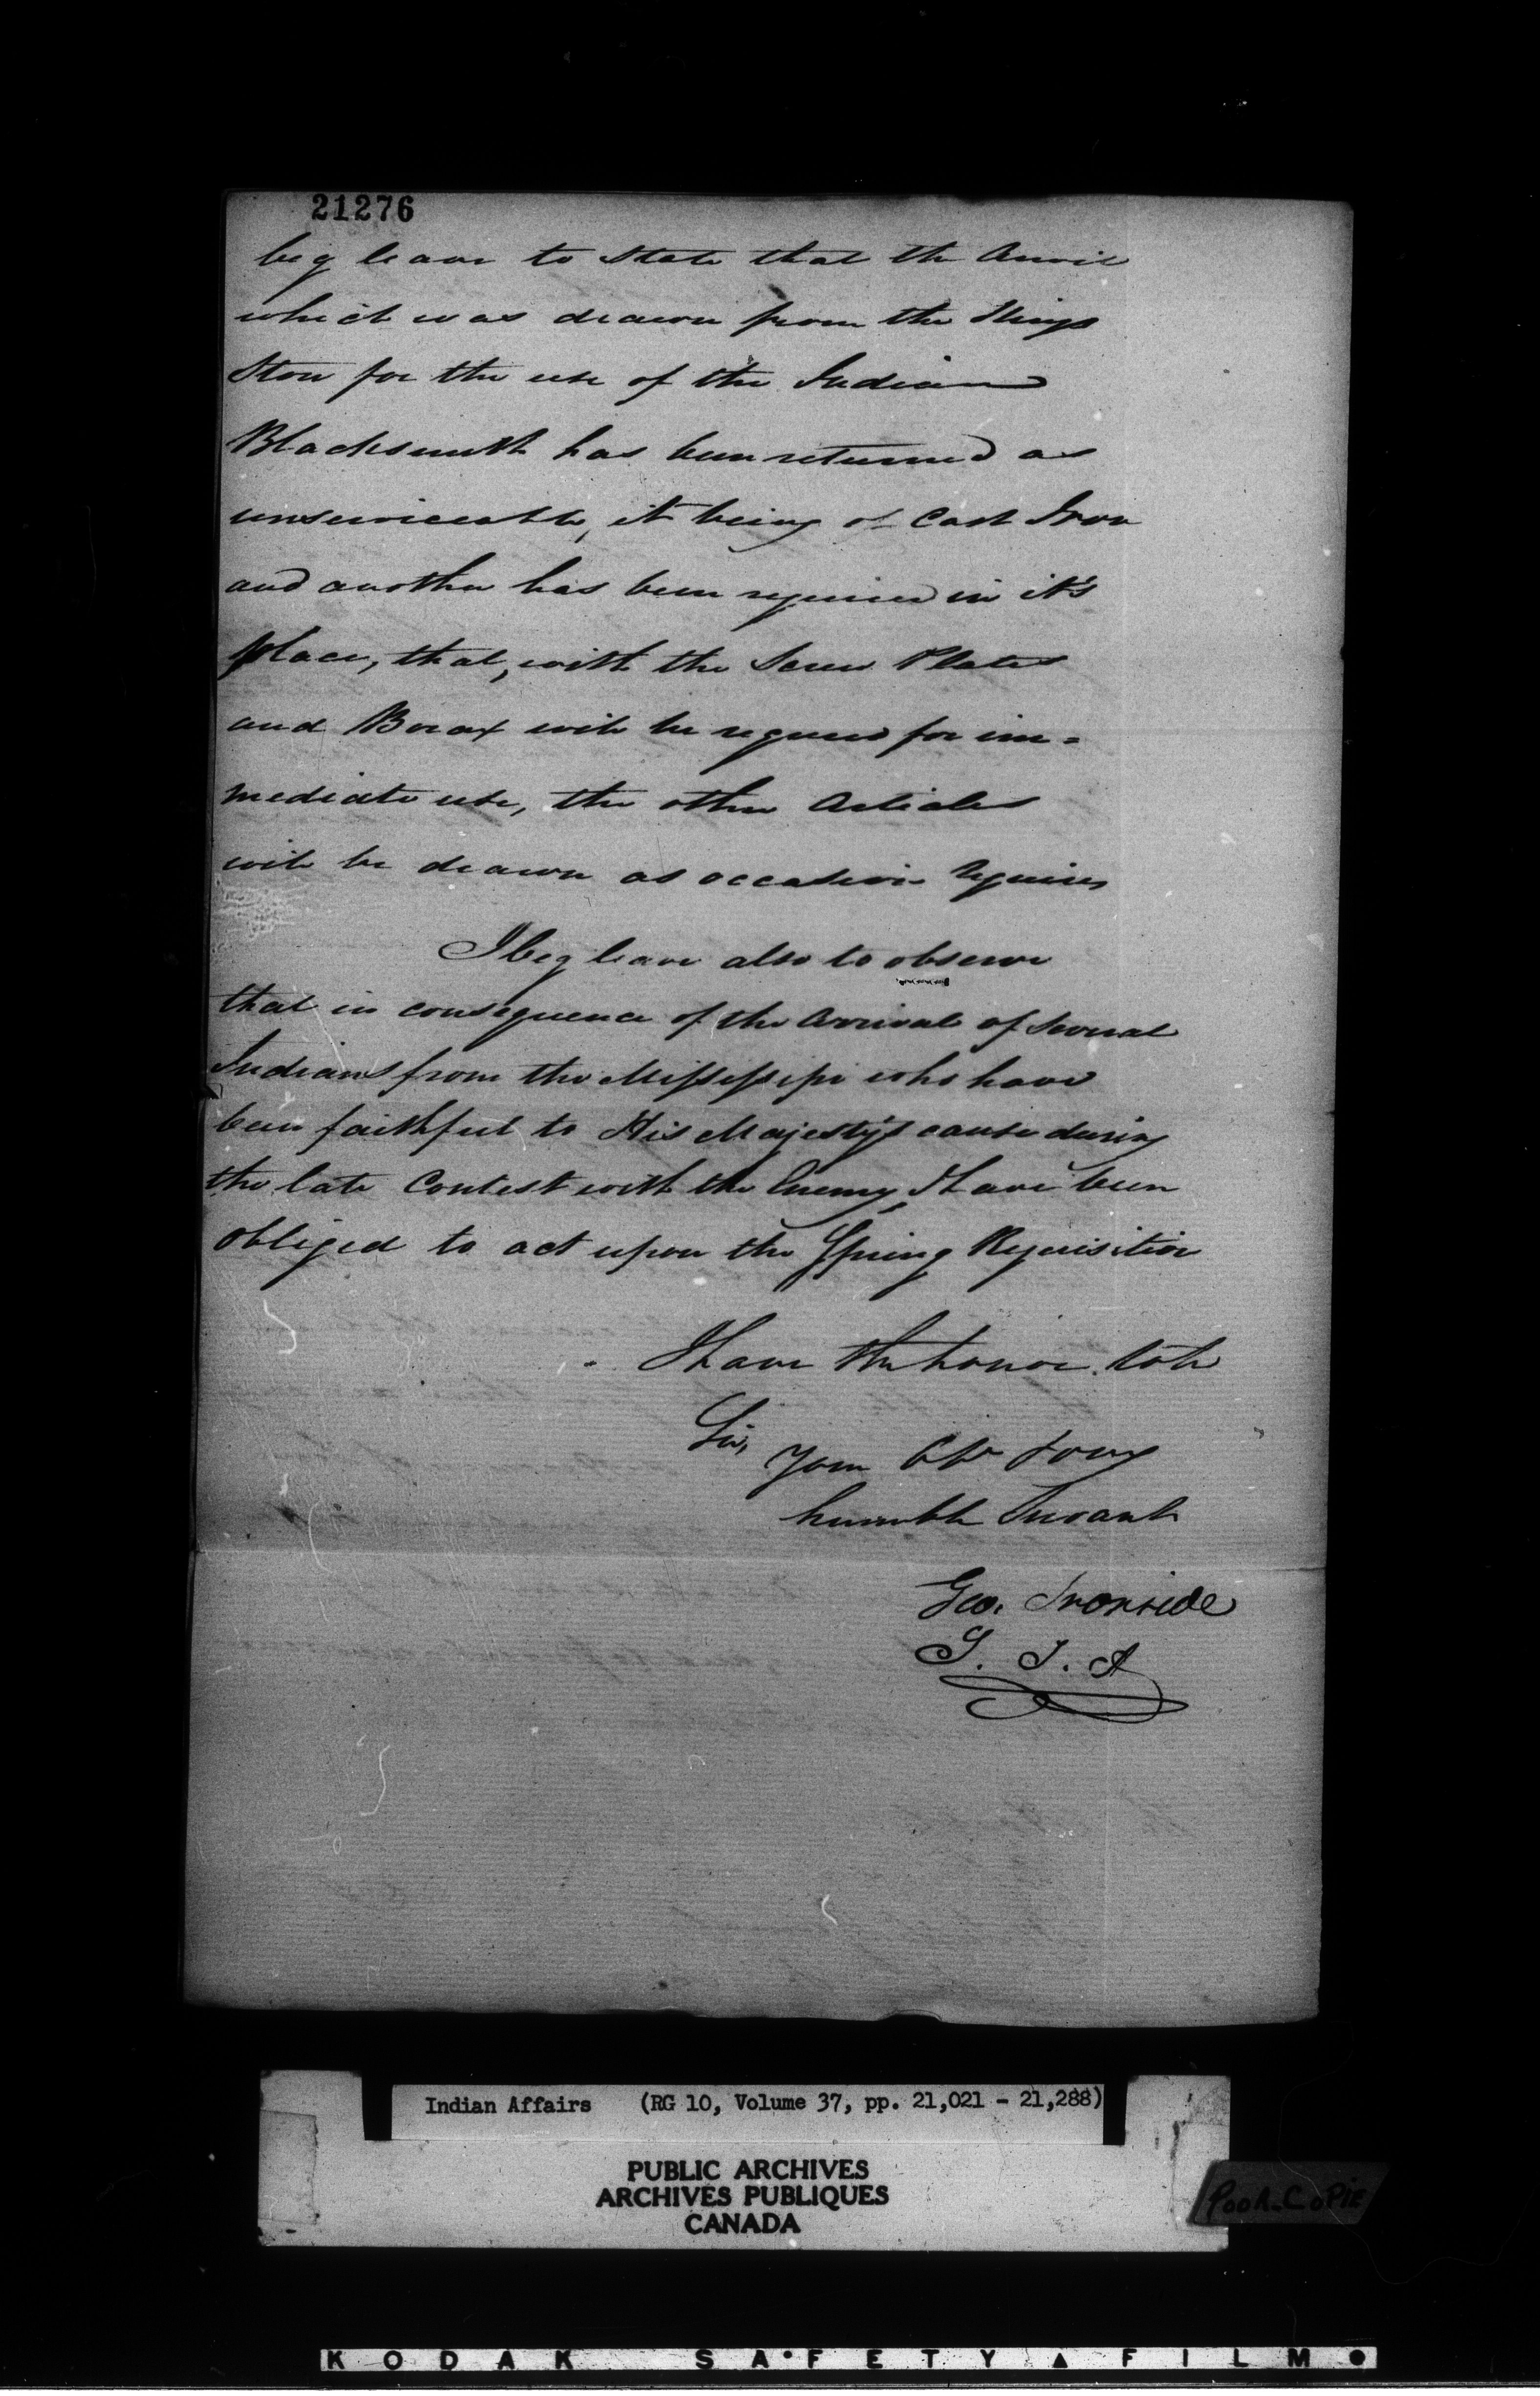 21276
beg leave to state that the Anvil
which was drawn from the Kings
Store for the use of the Indian
Blacksmith has been returned as
unserviceable, it being of Cast Iron
and another has been required in it's
place, that, with the Screw Plates
and Borax will be required for im=
mediate use, the other Articles
will be drawn as occasion requires
I beg leave also to observe
that in consequence of the Arrival of several
Indians from the Missisippi who have
been faithful to His Majesty's cause during
the late Contest with the Enemy, I have been
obliged to act upon the Spring Requisition
I have the honor to be
Sir,
Your
humble Servant
Geo. Ironside
S. I. A
Indian Affairs (RG 10, Volume 37, pp. 21,021 - 21,288)
PUBLIC ARCHIVES
ARCHIVES PUBLIQUES
CANADA
POOR-COPIE
KODAK SAFETY FILM